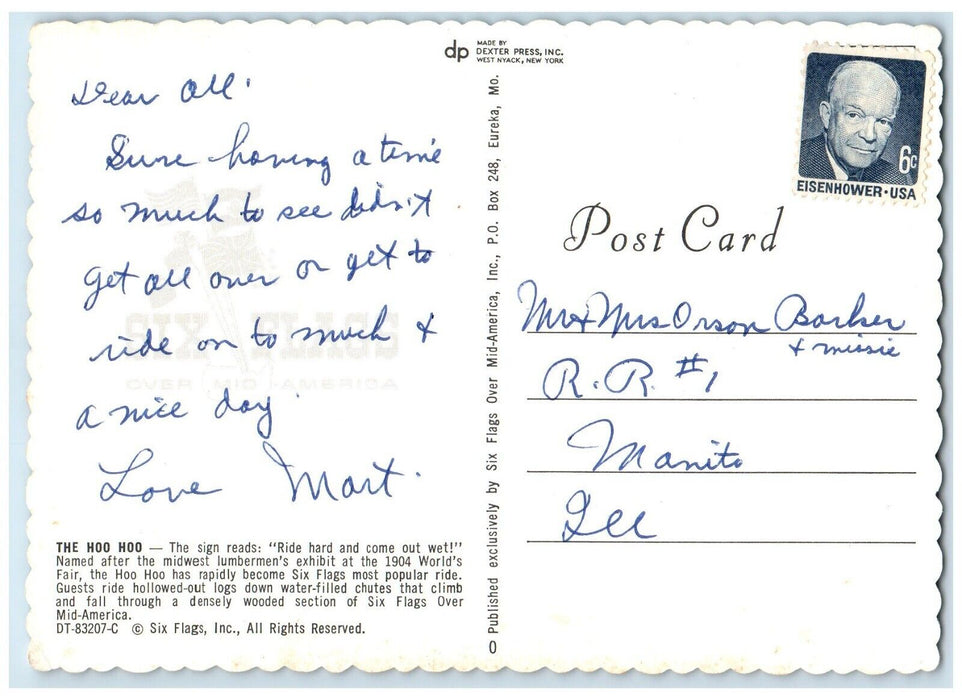 dp MADE BY
DEXTER PRESS, INC.
WEST NYACK, NEW YORK
Dear All.
Sure having a time
so much to see didn't
get all over or get to
ride on to much &
a nice day.
Love Mart.
SIX FLAGS
OVER MID-AMERICA
THE HOO HOO — The sign reads: "Ride hard and come out wet!"
Named after the midwest lumbermen's exhibit at the 1904 World's
Fair, the Hoo Hoo has rapidly become Six Flags most popular ride.
Guests ride hollowed-out logs down water-filled chutes that climb
and fall through a densely wooded section of Six Flags Over
Mid-America.
DT-83207-C © Six Flags, Inc., All Rights Reserved.
Published exclusively by Six Flags Over Mid-America, Inc., P.O. Box 248, Eureka, Mo.
0
6c
EISENHOWER·USA
Post Card
Mr & Mrs Orson Barker
& missie
R.R. #1
Manito
Ill